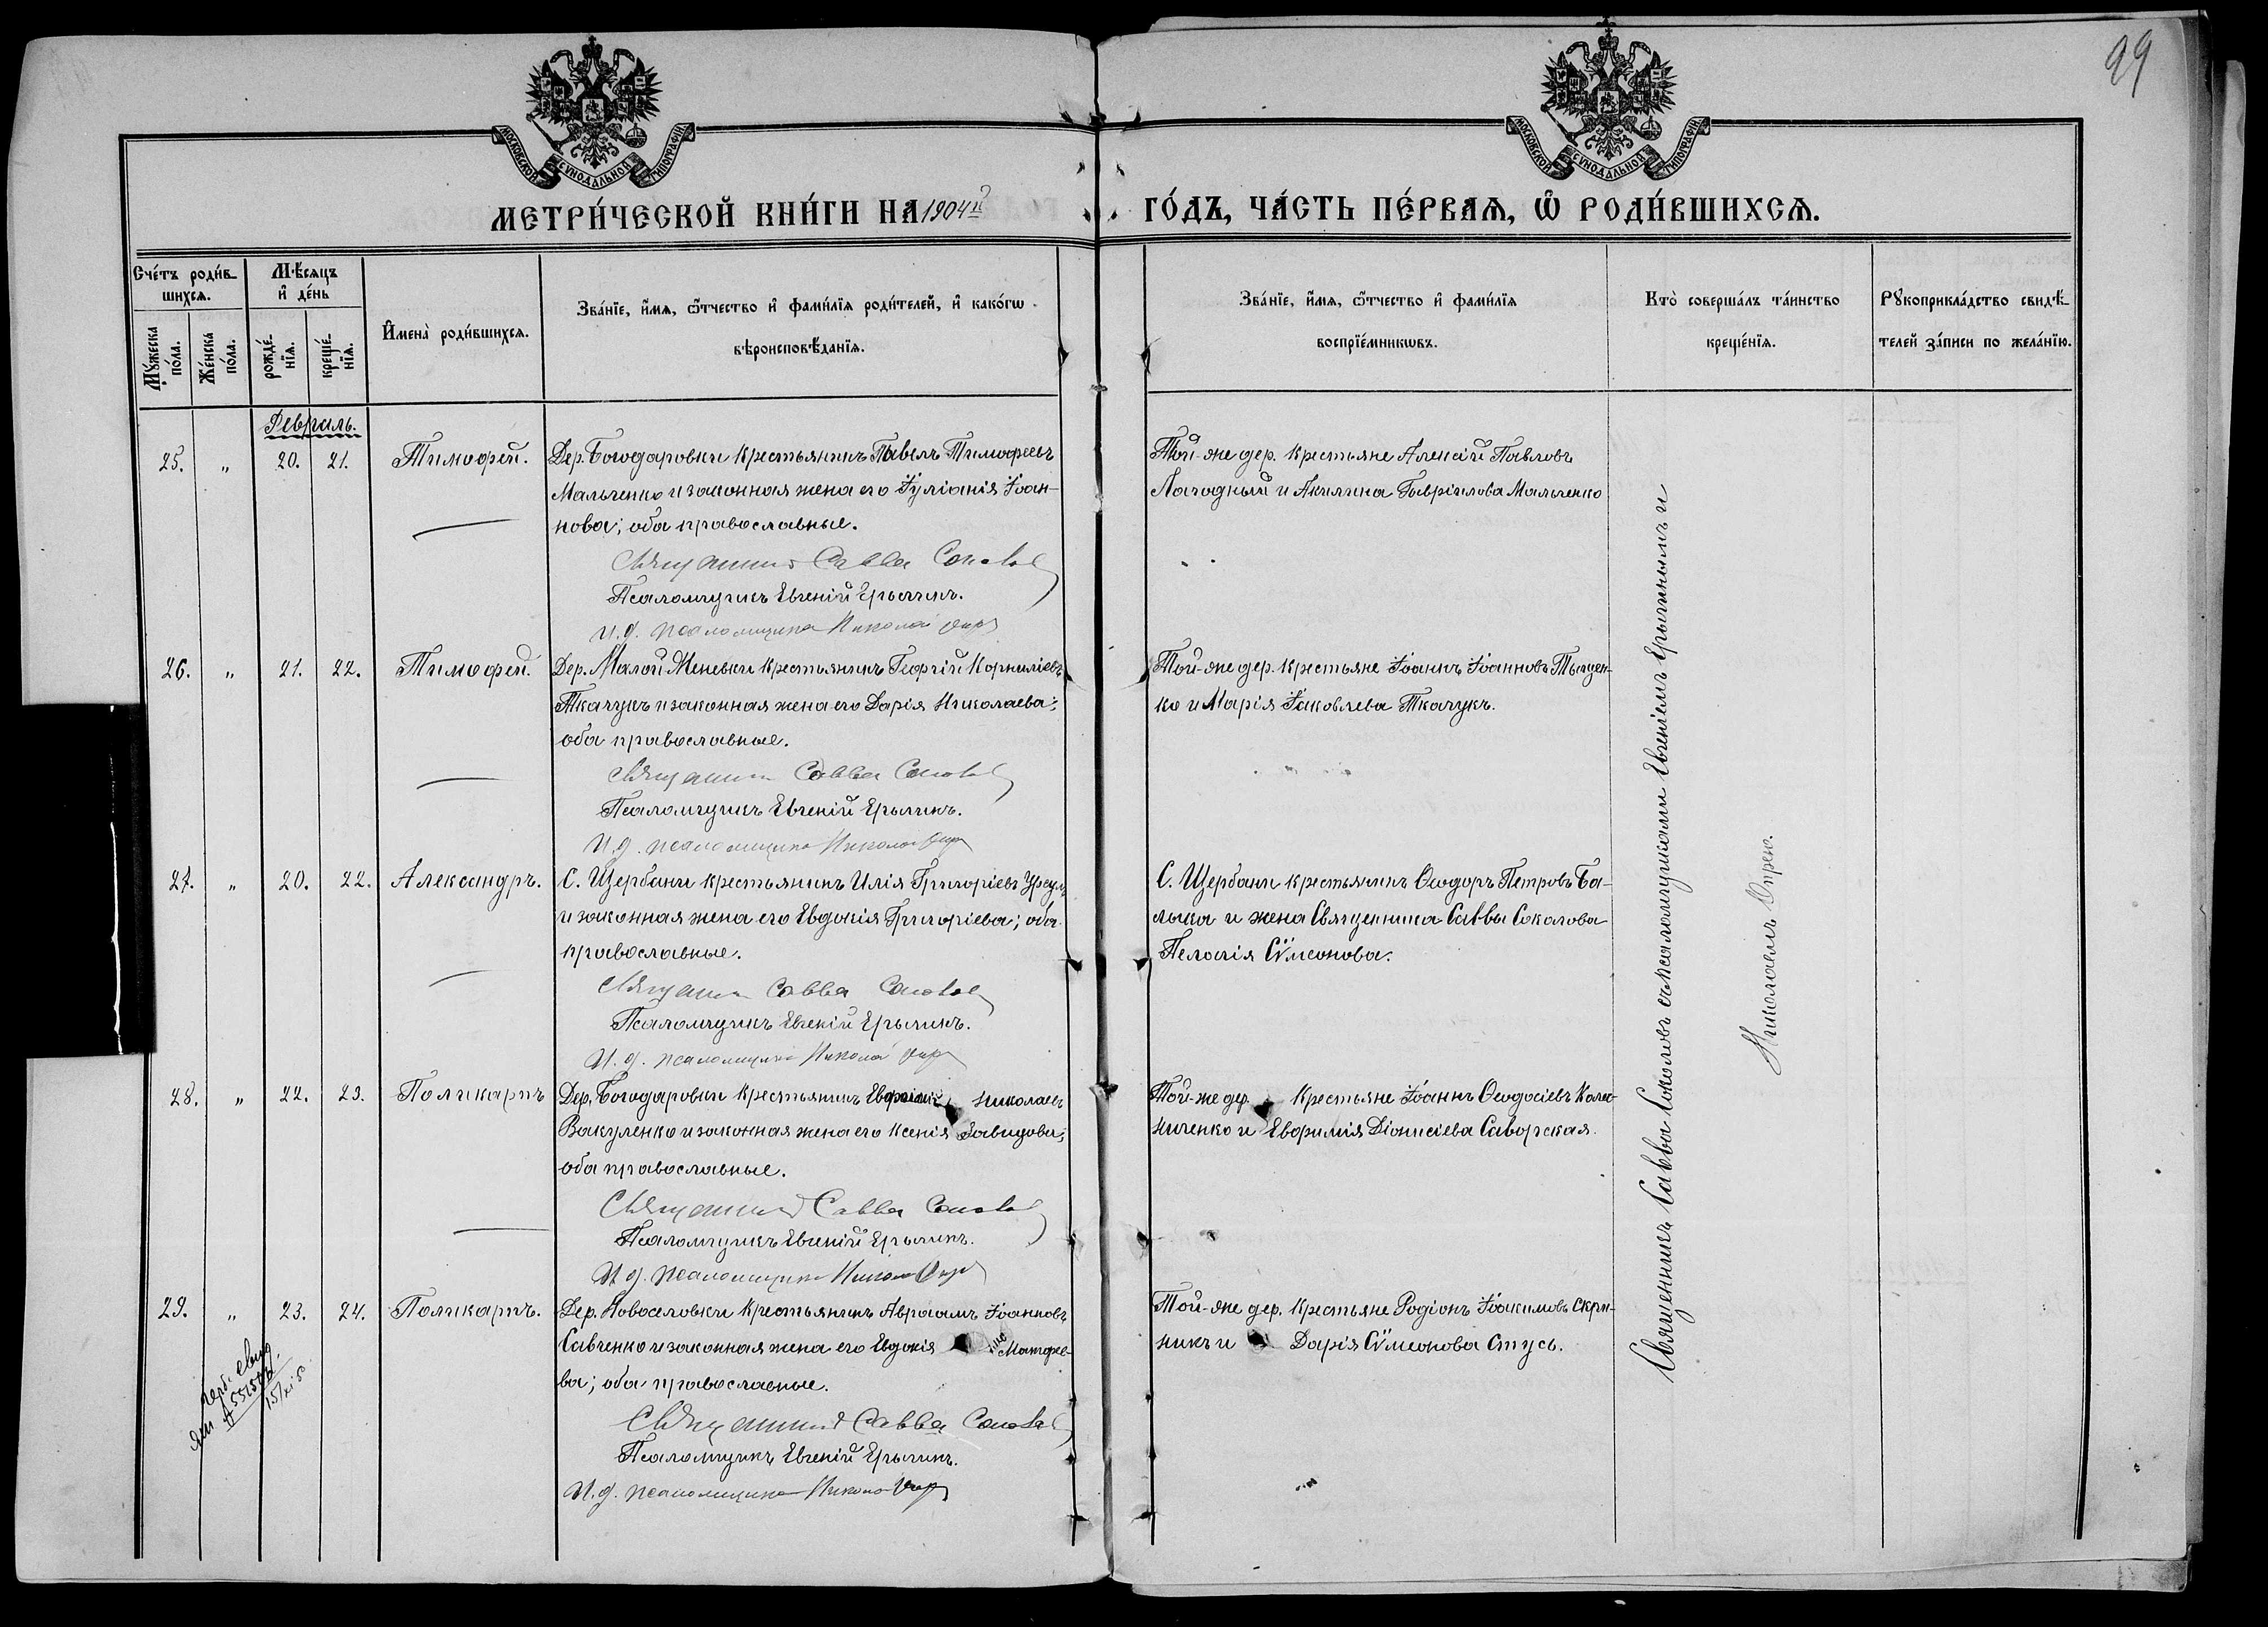 99
МОСКОВСКОЙ СѴНОДАЛЬНОЙ ТИПОГРАФІИ
МОСКОВСКОЙ СѴНОДАЛЬНОЙ ТИПОГРАФІИ
МЕТРИ́ЧЕСКОЙ КНИ́ГИ НА 1904й
ГО́ДЪ, ЧА́СТЬ ПЕ́РВАѦ, Ѽ РОДИ́ВШИХСѦ.
Сче́тъ роди́в-
шихсѧ.
Мꙋ́жеска по́ла.
Же́нска по́ла.
Мѣ́сѧцъ
и҆ де́нь
рожде́-
нїѧ.
креще́-
нїѧ.
И҆мена̀ роди́вшихсѧ.
Зва́нїе, и҆́мѧ, ѻ҆́тчество и҆ фами́лїѧ роди́телей, и҆ како́гѡ
вѣроисповѣ́данїѧ.
Зва́нїе, и҆́мѧ, ѻ҆́тчество и҆ фами́лїѧ
воспрїе́мникѡвъ.
Кто̀ соверша́лъ та́инство
креще́нїѧ.
Рꙋкоприкла́дство свидѣ́-
телей за́писи по жела́нїю.
Февраль.
25. " 20. 21. Тимофей. Дер. Богодаровки крестьянинъ Павелъ Тимофеевъ
Мальченко и законная жена его Іуліанія Іоан-
нова; оба православные.
Священникъ Савва Соколов
Псаломщикъ Евгеній Ерыгинъ.
И. д. псаломщика Николай
Той-же дер. крестьяне Алексій Павловъ
Лагодный и Акилина Гавріилова Мальченко
26. " 21. 22. Тимофей. Дер. Малой Меневки крестьянинъ Георгій Корниліевъ
Ткачукъ и законная жена его Дарія Николаева;
оба православные.
Священникъ Савва Соколов
Псаломщикъ Евгеній Ерыгинъ.
И. д. псаломщика Николай
Той-же дер. крестьяне Іоаннъ Іоанновъ Тыщен-
ко и Марія Іаковлева Ткачукъ.
27. " 20. 22. Александръ. С. Щербани крестьянинъ Илія Григоріевъ
и законная жена его Евдокія Григоріева; оба
православные.
Священникъ Савва Соколов
Псаломщикъ Евгеній Ерыгинъ.
И. д. псаломщика Николай
С. Щербани крестьянинъ Ѳеодоръ Петровъ Ба-
лыка и жена Священника Саввы Соколова
Пелагія Сѵмеонова.
28. " 22. 23. Поликарпъ Дер. Богодаровки крестьянинъ Николаевъ
Вакуленко и законная жена его Ксенія Давидова;
оба православные.
Священникъ Савва Соколов
Псаломщикъ Евгеній Ерыгинъ.
И. д. псаломщика Николай
Той-же дер. крестьяне Іоаннъ Ѳеодосіевъ
ниченко и Евфимія Діонисіева Саворская.
29. " 23. 24. Поликарпъ. Дер. Новоселовки крестьянинъ Авраамъ Іоанновъ
Савченко и законная жена его Евдокія Матфее-
ва; оба православные.
Священникъ Савва Соколов
Псаломщикъ Евгеній Ерыгинъ.
И. д. псаломщика Николай
Той-же дер. крестьяне Родіонъ Іоакимовъ Скрин-
никъ и Дарія Сѵмеонова Стусь.
Священникъ Савва Соколовъ съ псаломщиками Евгеніемъ Ерыгинымъ и
Николаемъ